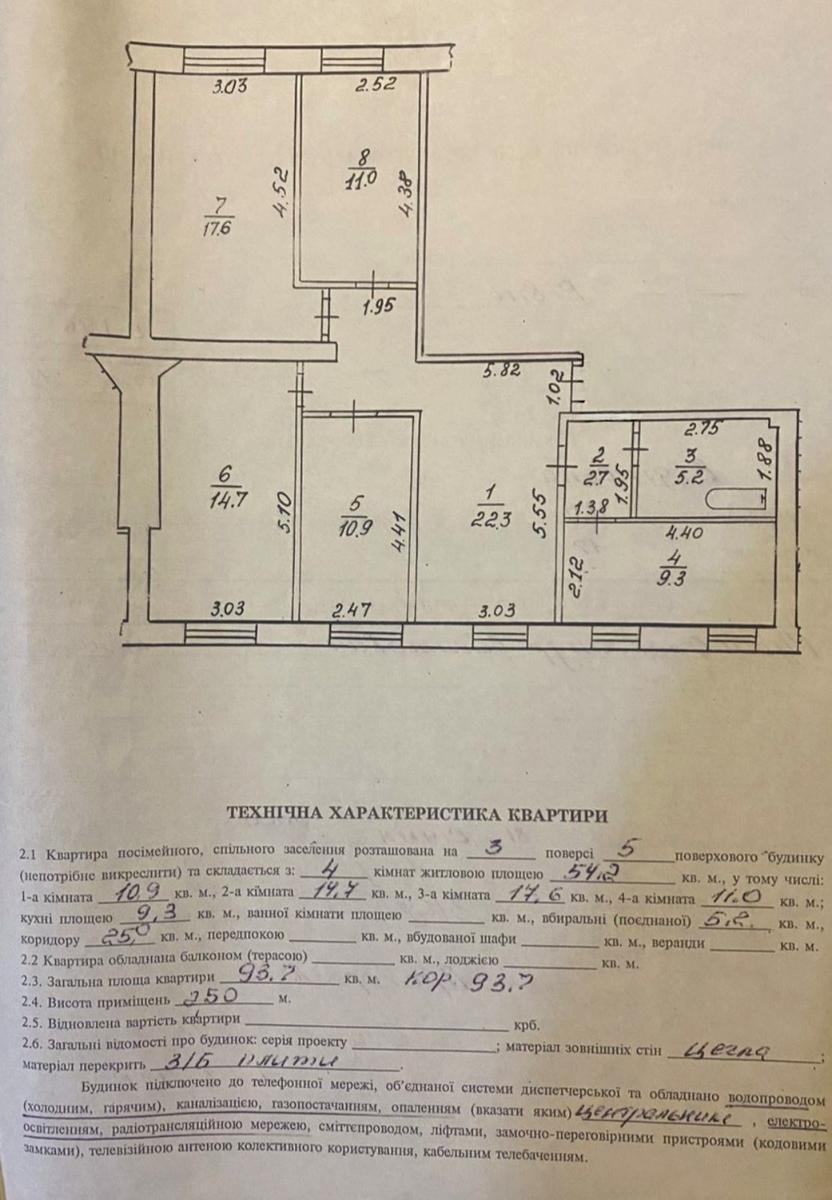 3.03
2.52
8
11.0
4.52
4.38
7
17.6
1.95
5.82
1.02
2.75
2
2.7
3
5.2
1.88
1.95
1.38
6
14.7
5
10.9
5.10
4.41
1
22.3
5.55
4.40
4
9.3
2.12
3.03
2.47
3.03
ТЕХНІЧНА ХАРАКТЕРИСТИКА КВАРТИРИ
2.1 Квартира посімейного, спільного заселення розташована на 3 поверсі 5 поверхового будинку
(непотрібне викреслити) та складається з: 4 кімнат житловою площею 54,2 кв. м., у тому числі:
1-а кімната 10,9 кв. м., 2-а кімната 14,7 кв. м., 3-а кімната 17,6 кв. м., 4-а кімната 11.0 кв. м.;
кухні площею 9,3 кв. м., ванної кімнати площею кв. м., вбиральні (поєднаної) 5,2 кв. м.,
коридору 25,0 кв. м., передпокою кв. м., вбудованої шафи кв. м., веранди кв. м.
2.2 Квартира обладнана балконом (терасою) кв. м., лоджією кв. м.
2.3. Загальна площа квартири 93,7 кв. м. кор. 93,7
2.4. Висота приміщень 250 м.
2.5. Відновлена вартість квартири крб.
2.6. Загальні відомості про будинок: серія проекту ; матеріал зовнішніх стін цегла ;
матеріал перекрить З/Б плити .
Будинок підключено до телефонної мережі, об'єднаної системи диспетчерської та обладнано водопроводом
(холодним, гарячим), каналізацією, газопостачанням, опаленням (вказати яким) , електро-
освітленням, радіотрансляційною мережею, сміттєпроводом, ліфтами, замочно-переговірними пристроями (кодовими
замками), телевізійною антеною колективного користування, кабельним телебаченням.